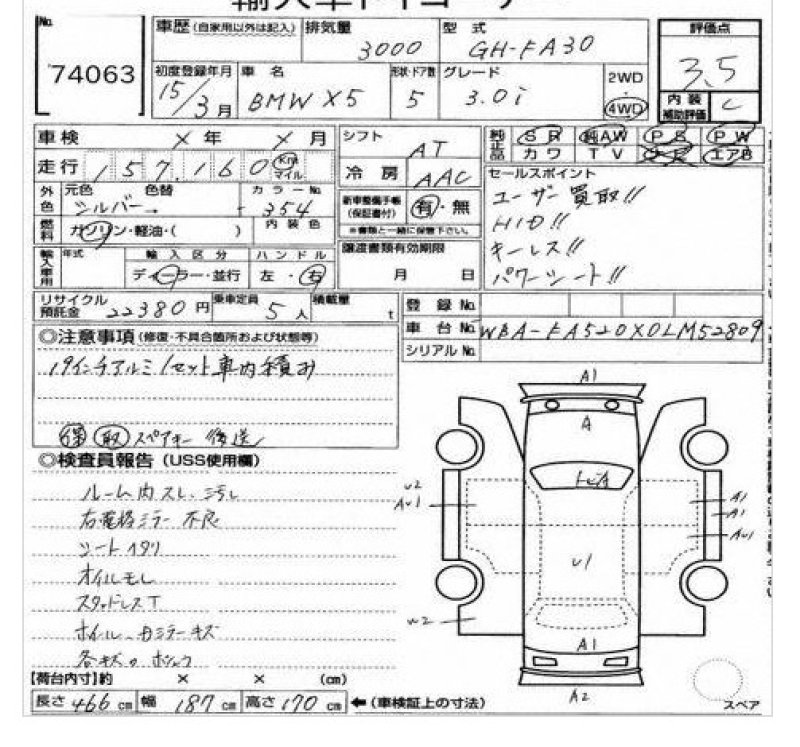 輸入車
No. 74063
車歴 (自家用以外は記入) 排気量 3000 型式 GH-FA30 評価点 3.5
初度登録年月 15/3月 車名 BMW X5 形状・ドア数 5 グレード 3.0i 2WD 4WD 内装補助評価 C
車検 × 年 × 月 シフト AT 純正品 SR 純AW PS PW
カワ TV エアB
走行 157,160 Km マイル 冷房 AAC セールスポイント
外色 元色 シルバー 色替 → カラーNo. 354 新車整備手帳 (保証書付) 有・無 ユーザー買取!!
燃料 ガソリン・軽油・( ) 内装色 ※書類と一緒に保管下さい。 HID!!
キーレス!!
輸入車用 年式 輸入区分 ディーラー・並行 ハンドル 左・右 譲渡書類有効期限 月 日 パワーシート!!
リサイクル預託金 22380円 乗車定員 5人 積載量 t 登録No.
車台No. WBA-FA520X0LM52809
シリアルNo.
◎注意事項 (修復・不具合箇所および状態等)
19インチアルミ1セット車内積み
保 取 スペアキー 後送
◎検査員報告 (USS使用欄)
ルーム内スレ、汚レ
右電格ミラー不良
シート
オイルモレ
スタッドレスT
ホイール、
各キズ
A1
A
U2
AU1
A1
A1
AU1
U1
U2
A1
A2
スペア
【荷台内寸】約 × × (cm)
長さ 466 cm 幅 187 cm 高さ 170 cm ←(車検証上の寸法)